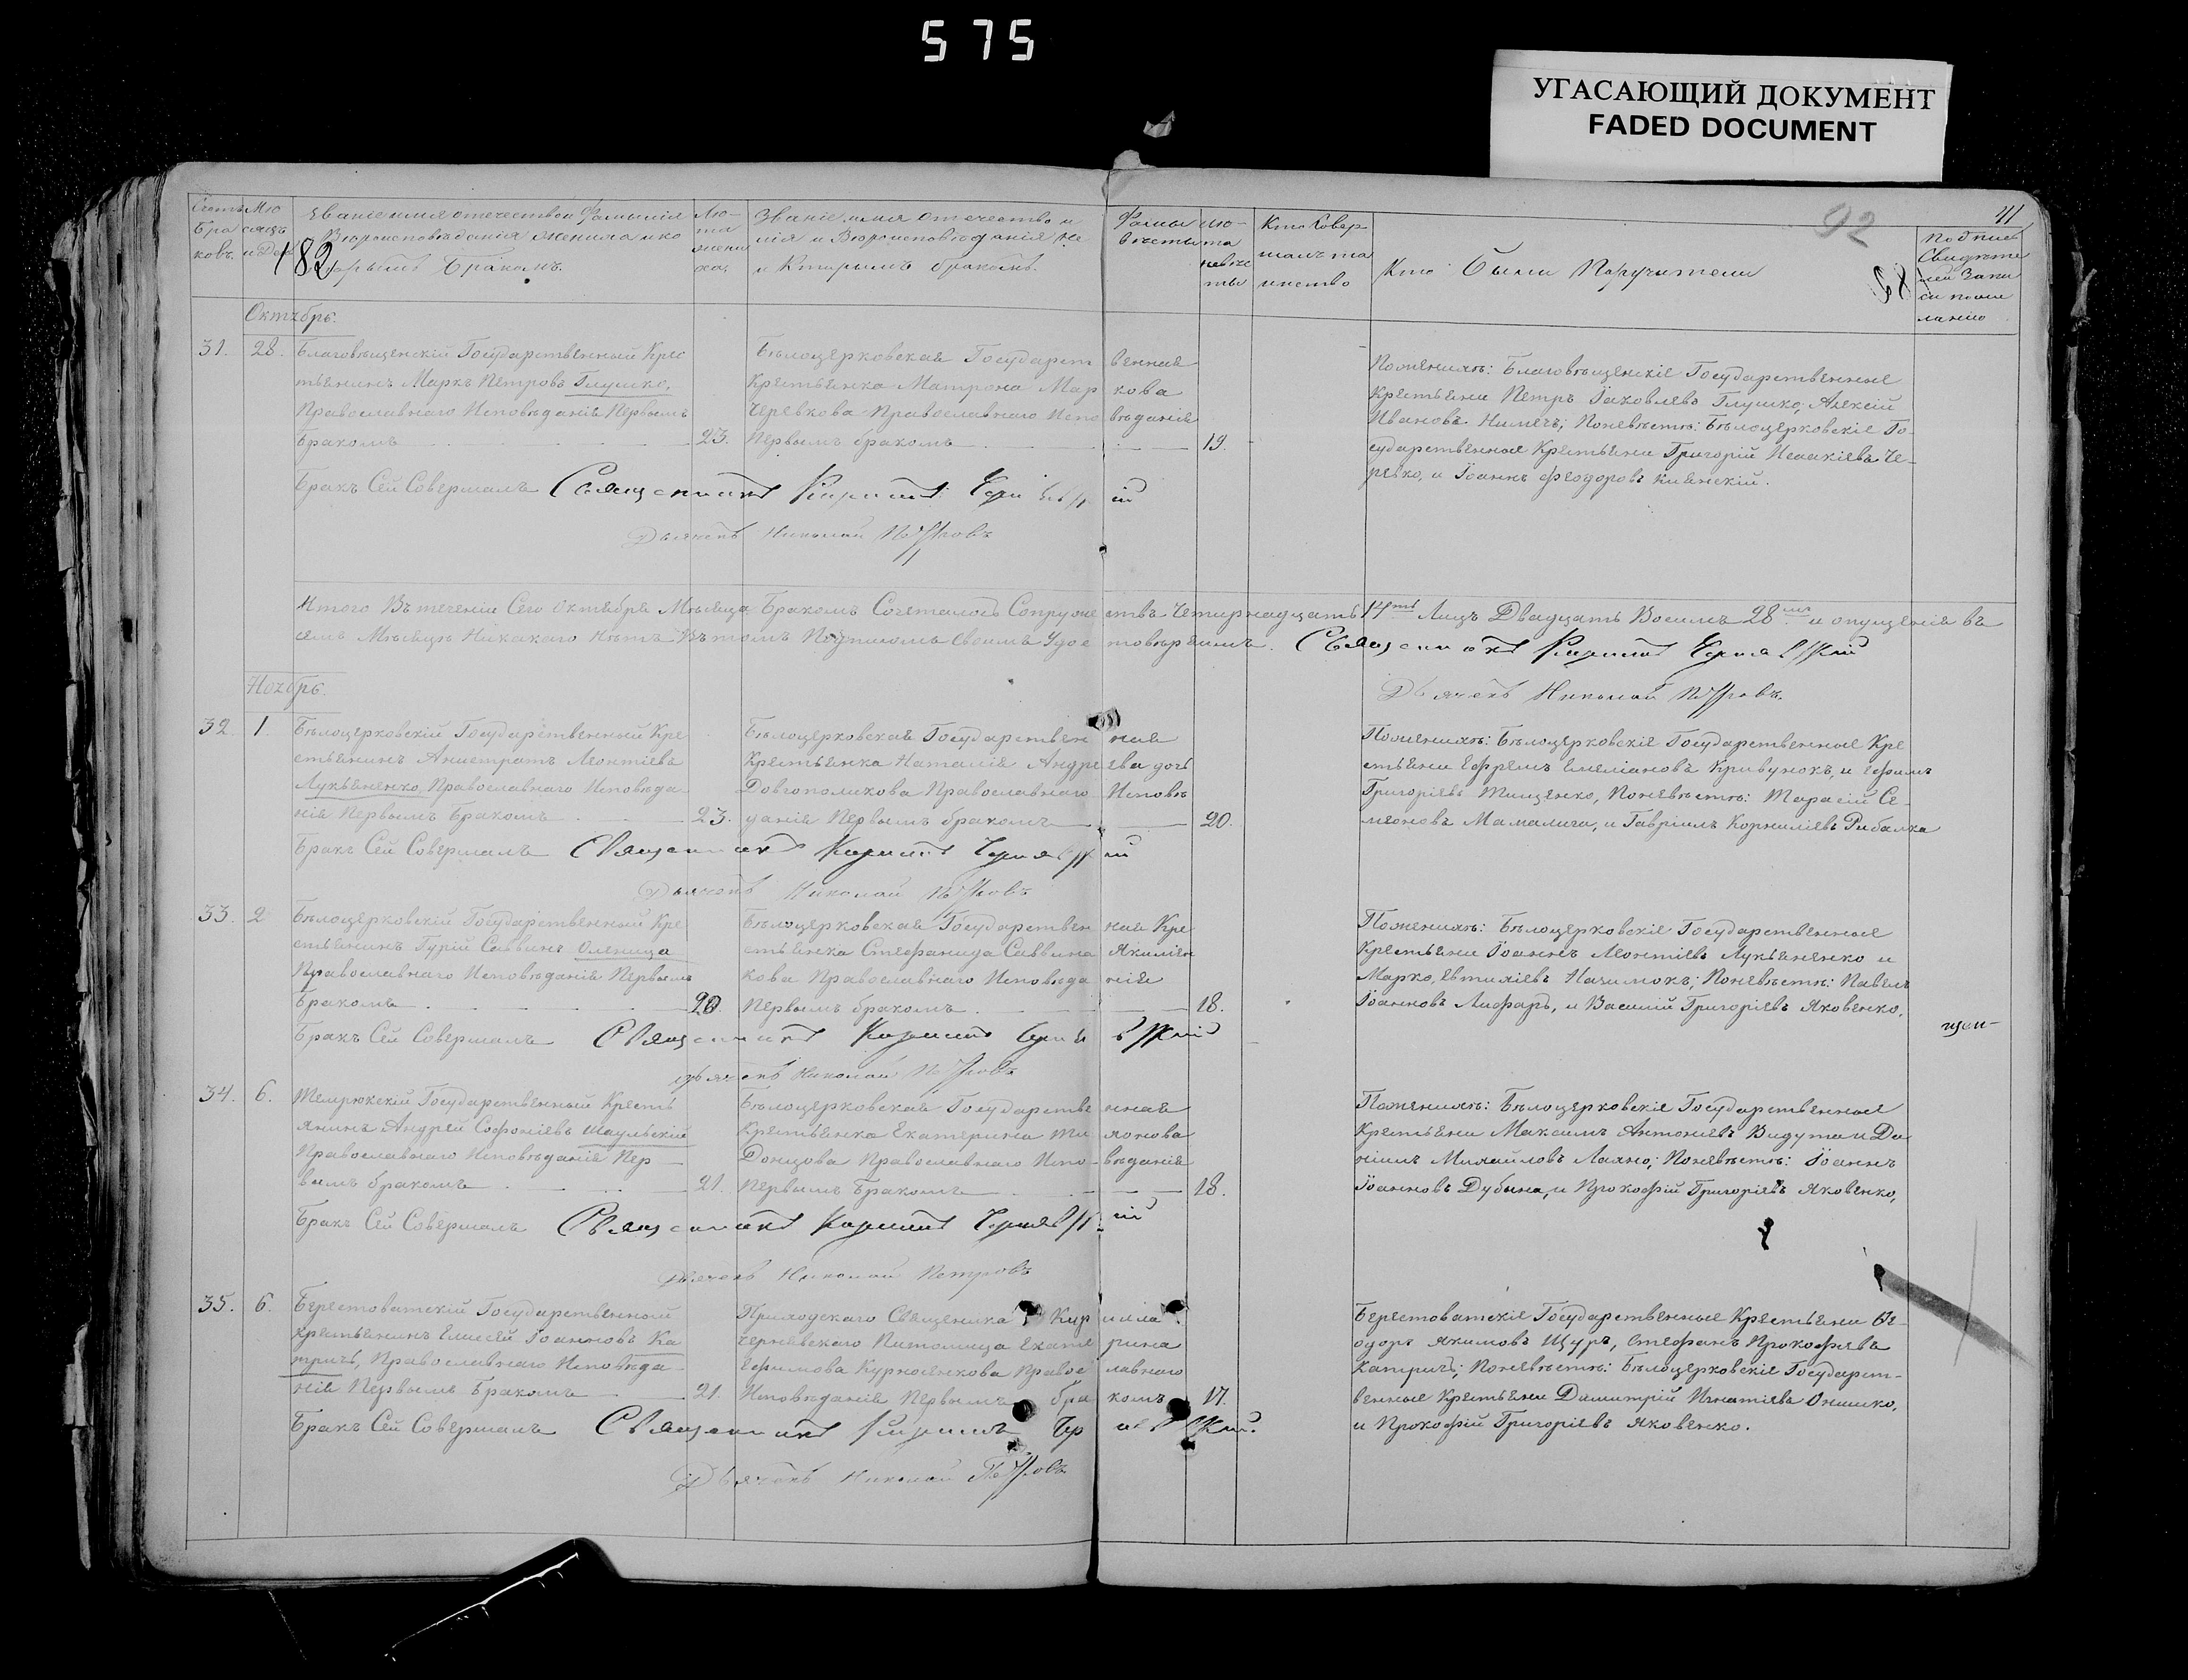 575
УГАСАЮЩИЙ ДОКУМЕНТ
FADED DOCUMENT
92
41
182
Счетъ Бра ковъ
Мѣ сяцъ и День
Званіе имя отечество и Фамилія
и Вѣроисповѣданія жениха и ко
торымъ Бракомъ.
Лѣ-
та
жени
ха.
Званіе имя отечество и Фамил
лія и Вѣроисповѣданія не вѣсты
и Которымъ бракомъ.
лѣ-
та
невѣс
ты
Кто Совер
шалъ та
инство
Кто Были Поручители
68
подпись
Свидѣте
лей Запи
си по же
ланію
Октябрь.
31. 28. Благовѣщенскій Государственный Крес
тьянинъ Маркъ Петровъ Глушко,
Православнаго Исповѣданія Первымъ
Бракомъ 23.
Бѣлоцерковская Государст венная
Крестьянка Матрона Мар кова
Черевкова Православнаго Испо вѣданія
Первымъ бракомъ 19.
Поженихѣ: Благовѣщенскіе Государственные
Крестьяни Петръ Іаковлевъ Глушко, Алексій
Ивановъ Нимечъ; Поневѣстѣ: Бѣлоцерковскіе Го-
сударственные Крестьяни Григорій Исаакіевъ Че-
ревко, и Іоаннъ Феодоровъ Киянскій.
Бракъ Сей Совершалъ Священникъ Кириллъ Чернявскій
Дьячекъ Николай Петровъ
Итого Въ теченіи Сего Октября Мѣсяца Бракомъ Сочеталось Супруже ствъ Четирнадцать 14ть Лицъ Двадцать Восимъ 28мъ и опущенія въ
семъ Мѣсяцѣ Никакого Нѣтъ Въ томъ Подписомъ Своимъ Удос товѣряимъ. Священникъ Кириллъ Чернявскій
Дьячекъ Николай Петровъ.
Ноябрь.
32. 1. Бѣлоцерковскій Государственный Кре
стьянинъ Анистратъ Леонтіевъ
Лукьяненко, Православнаго Исповѣда-
нія Первымъ Бракомъ 23.
Бѣлоцерковская Государствен ная
Крестьянка Наталія Андре ева дочь
Довгополикова Православнаго Исповѣ
данія Первымъ бракомъ 20.
Поженихѣ: Бѣлоцерковскіе Государственные Кре
стьяни Ефремъ Емеліановъ Кривунокъ, и Ефимъ
Григоріевъ Тищенко, Поневѣстѣ: Тарасій Се-
меоновъ Мамалига, и Гавріилъ Корниліевъ Рибалка
Бракъ Сей Совершалъ Священникъ Кириллъ Чернявскій
Дьячекъ Николай Петровъ
33. 2 Бѣлоцерковскій Государственный Кре
стьянинъ Гурій Саввинъ Оленица
Православнаго Исповѣданія Первымъ
Бракомъ 20.
Бѣлоцерковская Государствен ная Кре
стьянка Стефанида Саввина Якимен
кова Православнаго Исповѣда нія
Первымъ бракомъ 18.
Поженихѣ: Бѣлоцерковскіе Государственные
Крестьяни Іоаннъ Леонтіевъ Лукьяненко и
Марко, Евтихіевъ Начимокъ; Поневѣстѣ: Павелъ
Іоанновъ Лифарь, и Василій Григоріевъ Яковенко.
Бракъ Сей Совершалъ Священникъ Кириллъ Чернявскій
Дьячекъ Николай Петровъ
34. 6. Темрюкскій Государственный Кресть
янинъ Андрей Софоніевъ Шаульскій
Православнаго Исповѣданія Пер
вымъ бракомъ 21.
Бѣлоцерковская Государстве нная
Крестьянка Екатерина
Донцова Православнаго Испо- вѣданія
Первымъ Бракомъ 18.
Поженихѣ: Бѣлоцерковскіе Государственные
Крестьяни Максимъ Антоніевъ Видута и Да
ніилъ Михайловъ Лахно; Поневѣстѣ: Іоаннъ
Іоанновъ Дубына, и Прокофій Григоріевъ Яковенко,
Бракъ Сей Совершалъ Священникъ Кириллъ Чернявскій
Дьячекъ Николай Петровъ
35. 6. Берестоватскій Государственный
Крестьянинъ Елисей Іоанновъ Ка
тричъ, Православнаго Исповѣда
нія Первымъ Бракомъ 21.
Приходскаго Священика Кир илла
Чернявскаго Питомица Екате рина
Ефимова Курносенкова Правос лавнаго
Исповѣданія Первымъ бра комъ 17.
Берестоватскіе Государственные Крестьяни Ѳе-
одоръ Якимовъ Щуръ, Стефанъ Прокофіевъ
Катричъ; Поневѣстѣ: Бѣлоцерковскіе Государст-
венные Крестьяни Дамитрій Игнатіевъ Онишко,
и Прокофій Григоріевъ Яковенко.
Бракъ Сей Совершалъ Священникъ Кириллъ Чернявскій.
Дьячекъ Николай Петровъ